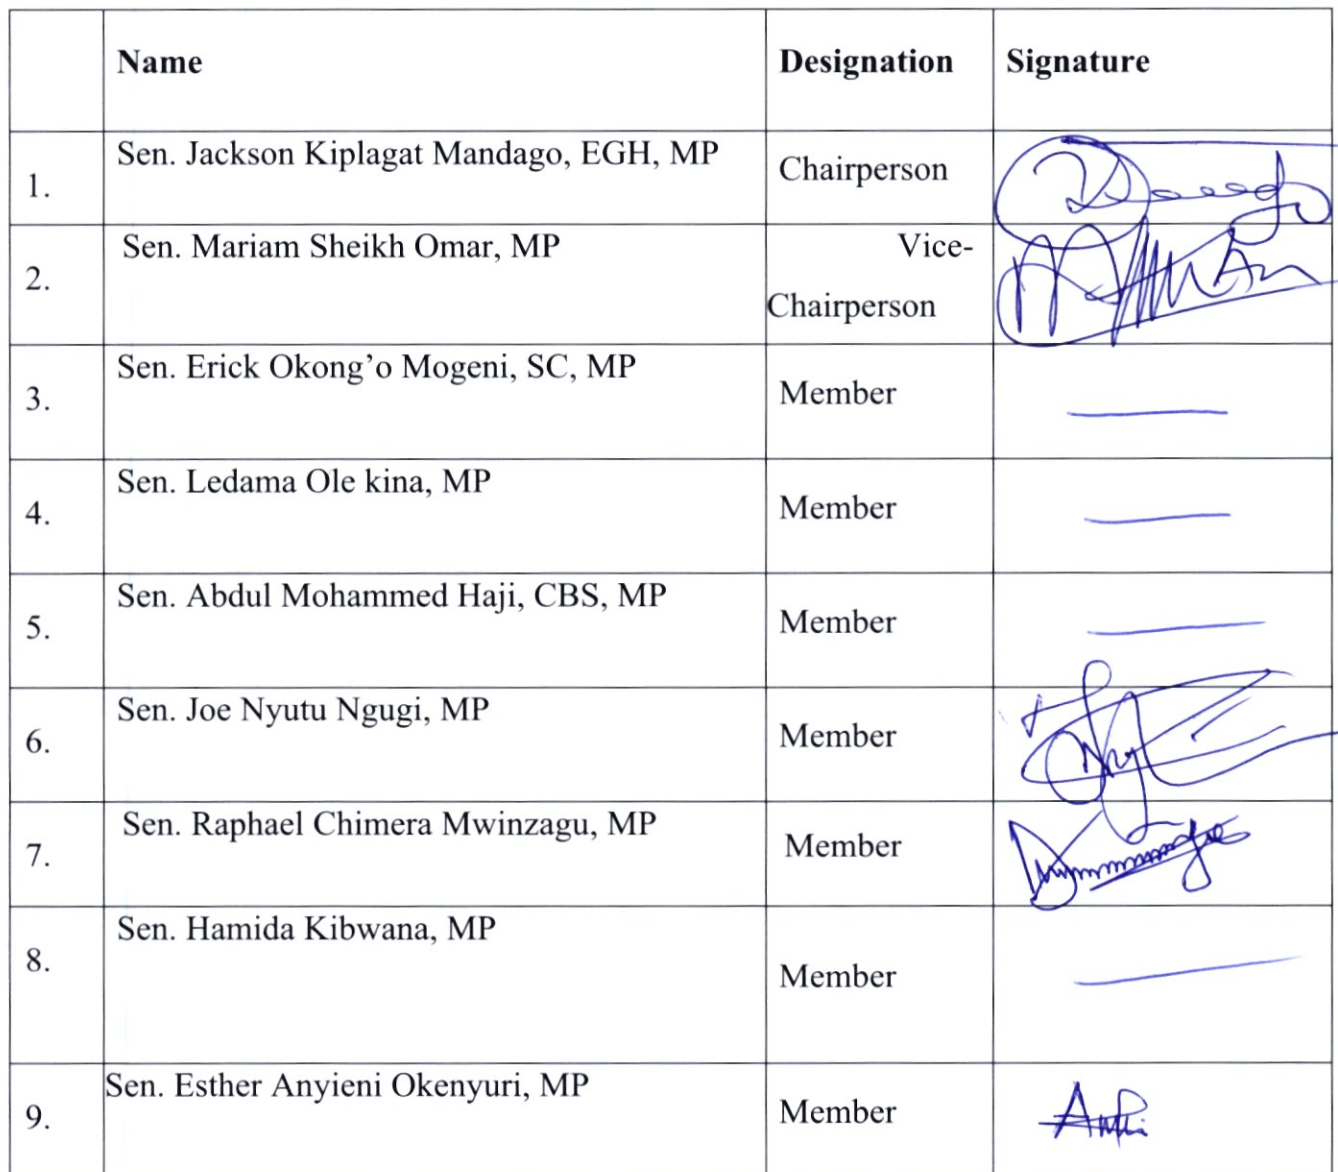 Name Designation Signature
Sen. Jackson Kiplagat Mandago, EGH, MP
1. Chairperson
Sen. Mariam Sheikh Omar, MP Vice-
2.
Chairperson
Sen. Erick Okong’o Mogeni, SC, MP
3. Member
Sen. Ledama Ole kina, MP
4. Member
Sen. Abdul Mohammed Haji, CBS, MP
5. Member
Sen. Joe Nyutu Ngugi, MP
6. Member
Sen. Raphael Chimera Mwinzagu, MP
7. Member
Sen. Hamida Kibwana, MP
8. Member
Sen. Esther Anyieni Okenyuri, MP
9. Member